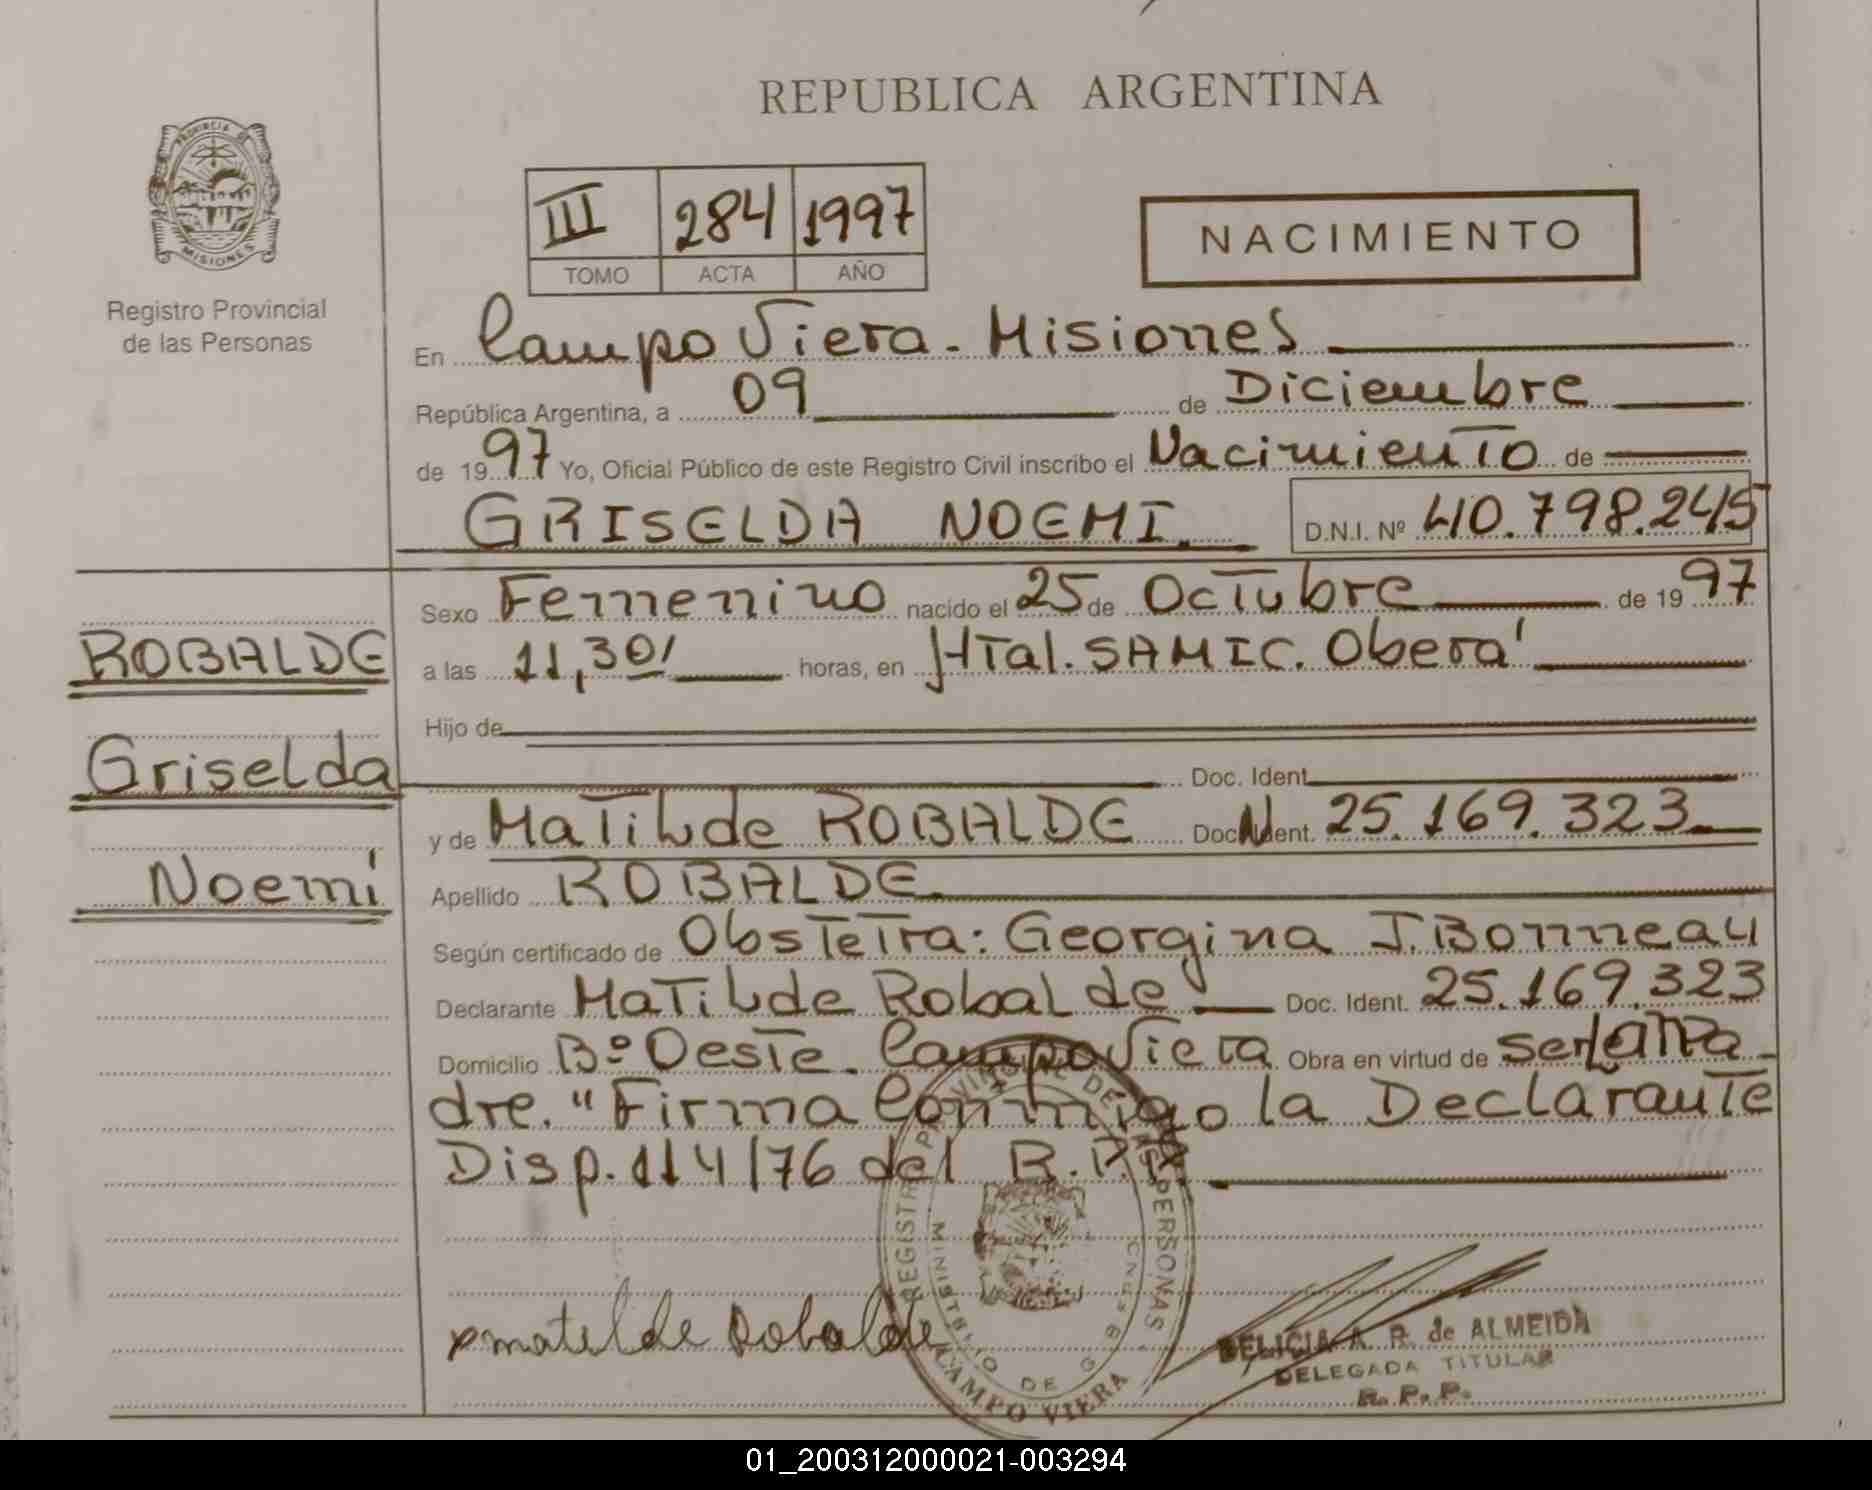 REPUBLICA ARGENTINA
PROVINCIA DE
MISIONES
Registro Provincial
de las Personas
III 284 1997
TOMO ACTA AÑO
NACIMIENTO
En Campo Viera - Misiones
República Argentina, a 09 de Diciembre
de 1997 Yo, Oficial Público de este Registro Civil inscribo el Nacimiento de
GRISELDA NOEMI. D.N.I. Nº 40.798.245
Sexo Femenino nacido el 25 de Octubre de 1997
ROBALDE
a las 11,30' horas, en Htal. SAMIC. Oberá
Hijo de
Griselda
Doc. Ident.
y de Matilde ROBALDE Doc. Ident. 25.169.323
Noemí
Apellido ROBALDE
Según certificado de Obstetra: Georgina J. Bonneau
Declarante Matilde Robalde Doc. Ident. 25.169.323
Domicilio Bº Oeste. Campo Viera Obra en virtud de ser la Ma-
dre. "Firma Conmigo la Declarante
Disp. 114/76 del R.P.P.
REGISTRO PROVINCIAL DE LAS PERSONAS
MINISTERIO DE GOB
CAMPO VIERA
matilde Robalde
DELICIA A. R. de ALMEIDA
DELEGADA TITULAR
R. P. P.
01_200312000021-003294